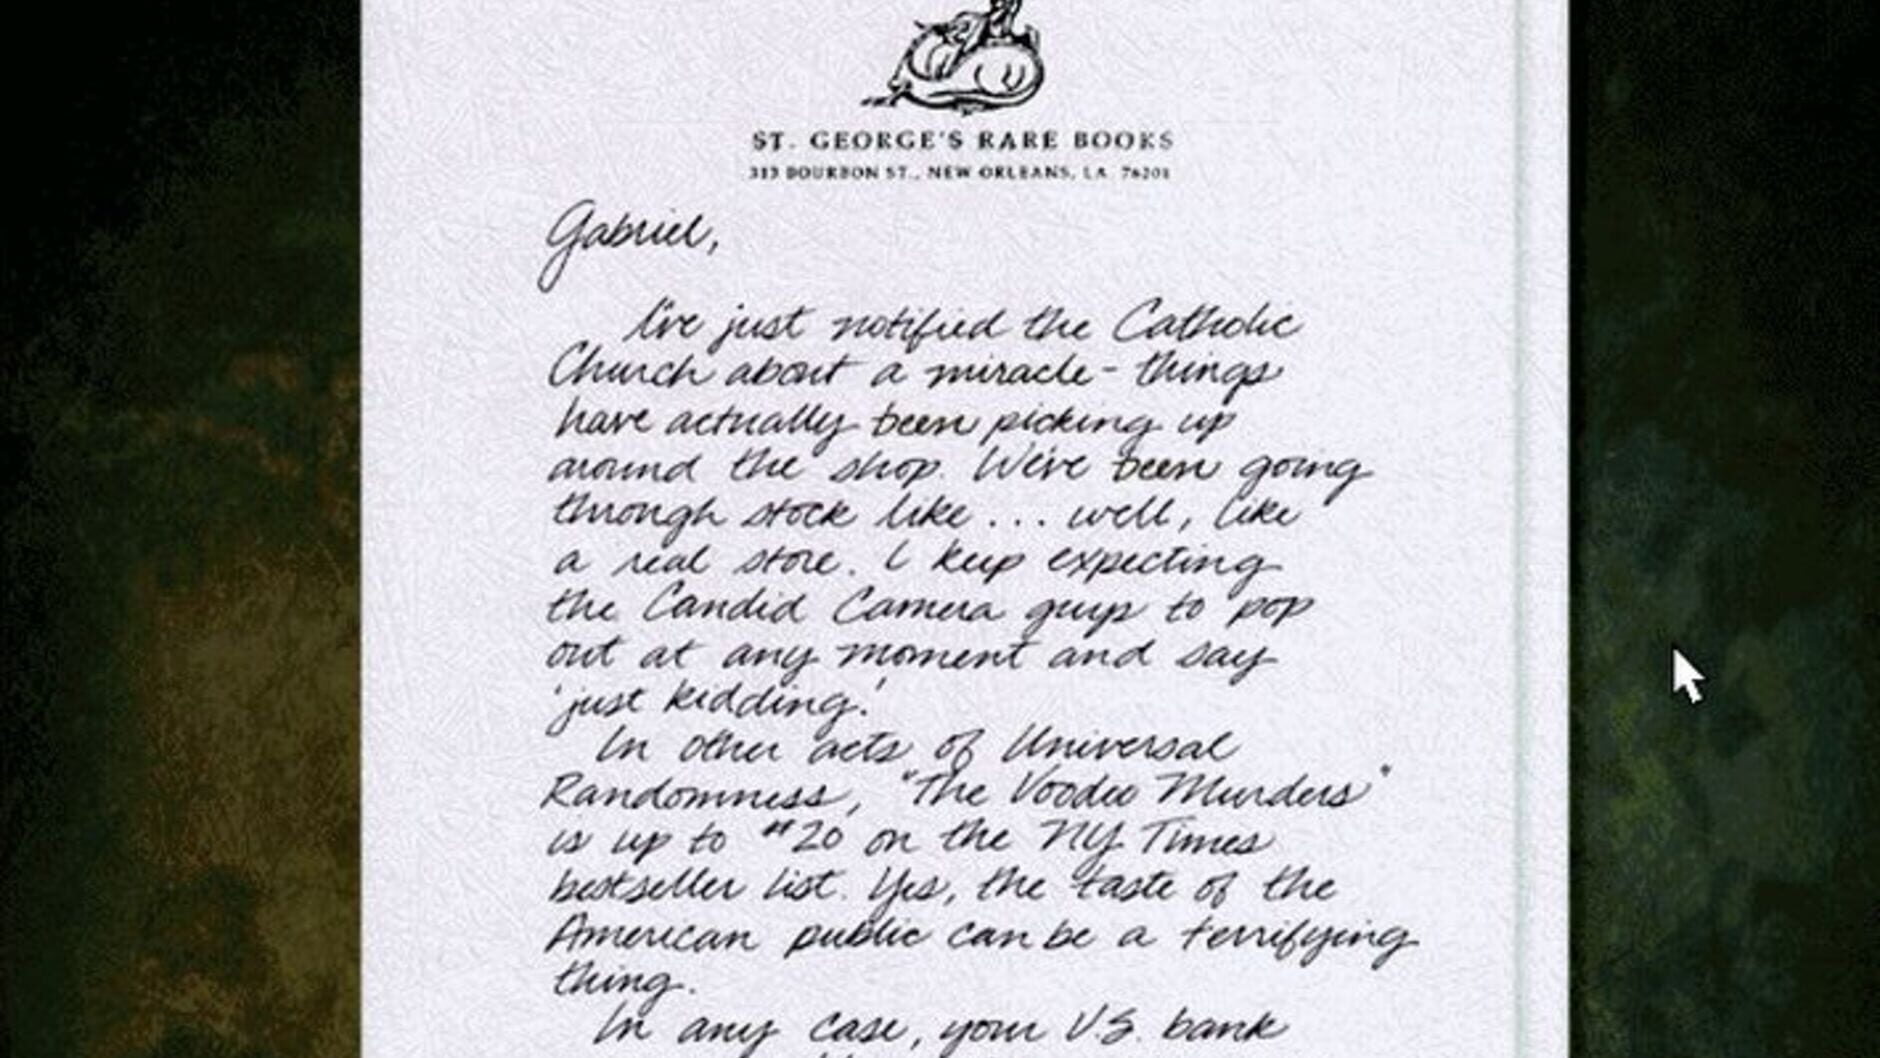 ST. GEORGE'S RARE BOOKS
313 BOURBON ST., NEW ORLEANS, LA 76201
Gabriel,
I've just notified the Catholic
Church about a miracle - things
have actually been picking up
around the shop. We've been going
through stock like... well, like
a real store. I keep expecting
the Candid Camera guys to pop
out at any moment and say
'just kidding.'
In other acts of Universal
Randomness, "The Voodoo Murders"
is up to #20 on the NY Times
bestseller list. Yes, the taste of the
American public can be a terrifying
thing.
In any case, your U.S. bank